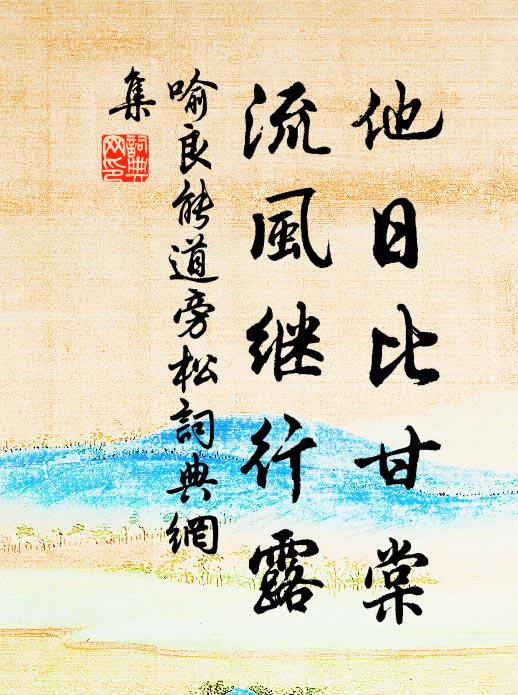 他日比甘棠
流風继行露
喻良能道旁松詞典網
集
詞典
网印